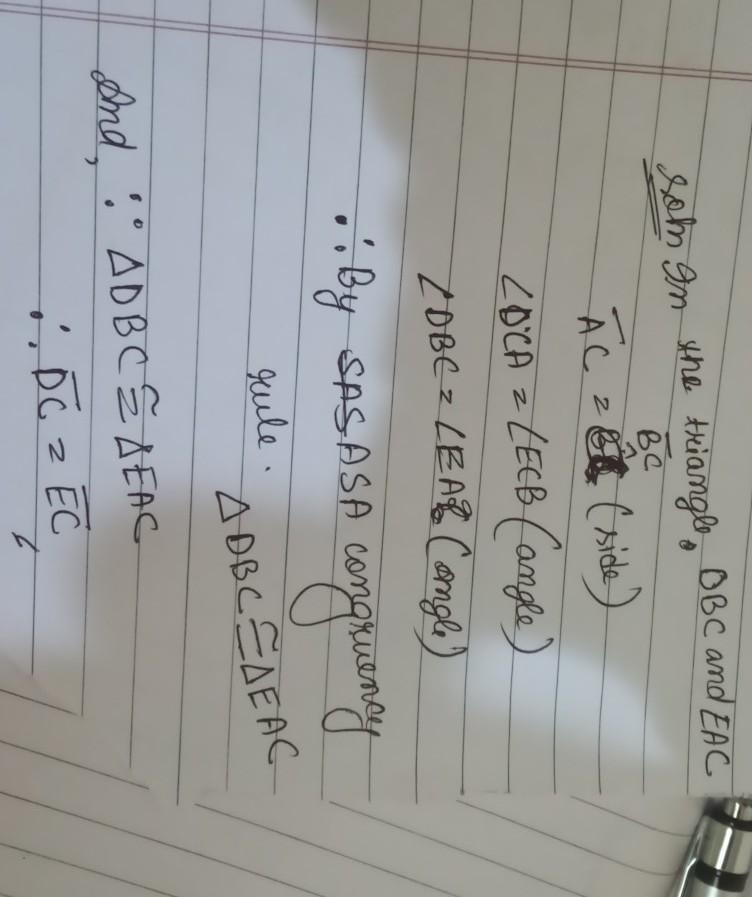 Soln In the triangle. DBC and EAC
BC
AC = (side)
∠DCA = ∠ECB (angle)
∠DBC = ∠EAC (angle)
∴ By ASA congruency
rule.
△DBC ≅ △EAC
And, ∵ △DBC ≅ △EAC
∴ DC = EC